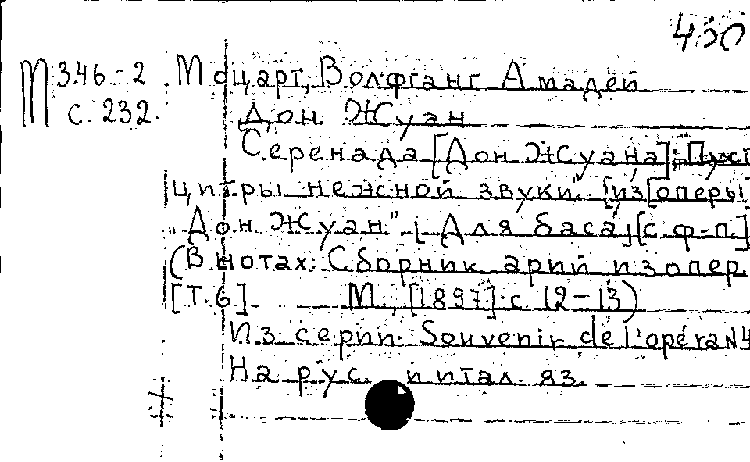 430
М 346-2 Моцарт, Вольфганг Амадей
с. 232. Дон Жуан
Серенада [Дон Жуана]:
цитры нежной звуки". [из оперы
"Дон Жуан"] [Для баса] [с ф-п.]
(В нотах: Сборник арий из опер.
[Т. 6]. М., [1897]. с 12-13)
Из серии: Souvenir de l'opéra N4
На рус. и итал. яз.